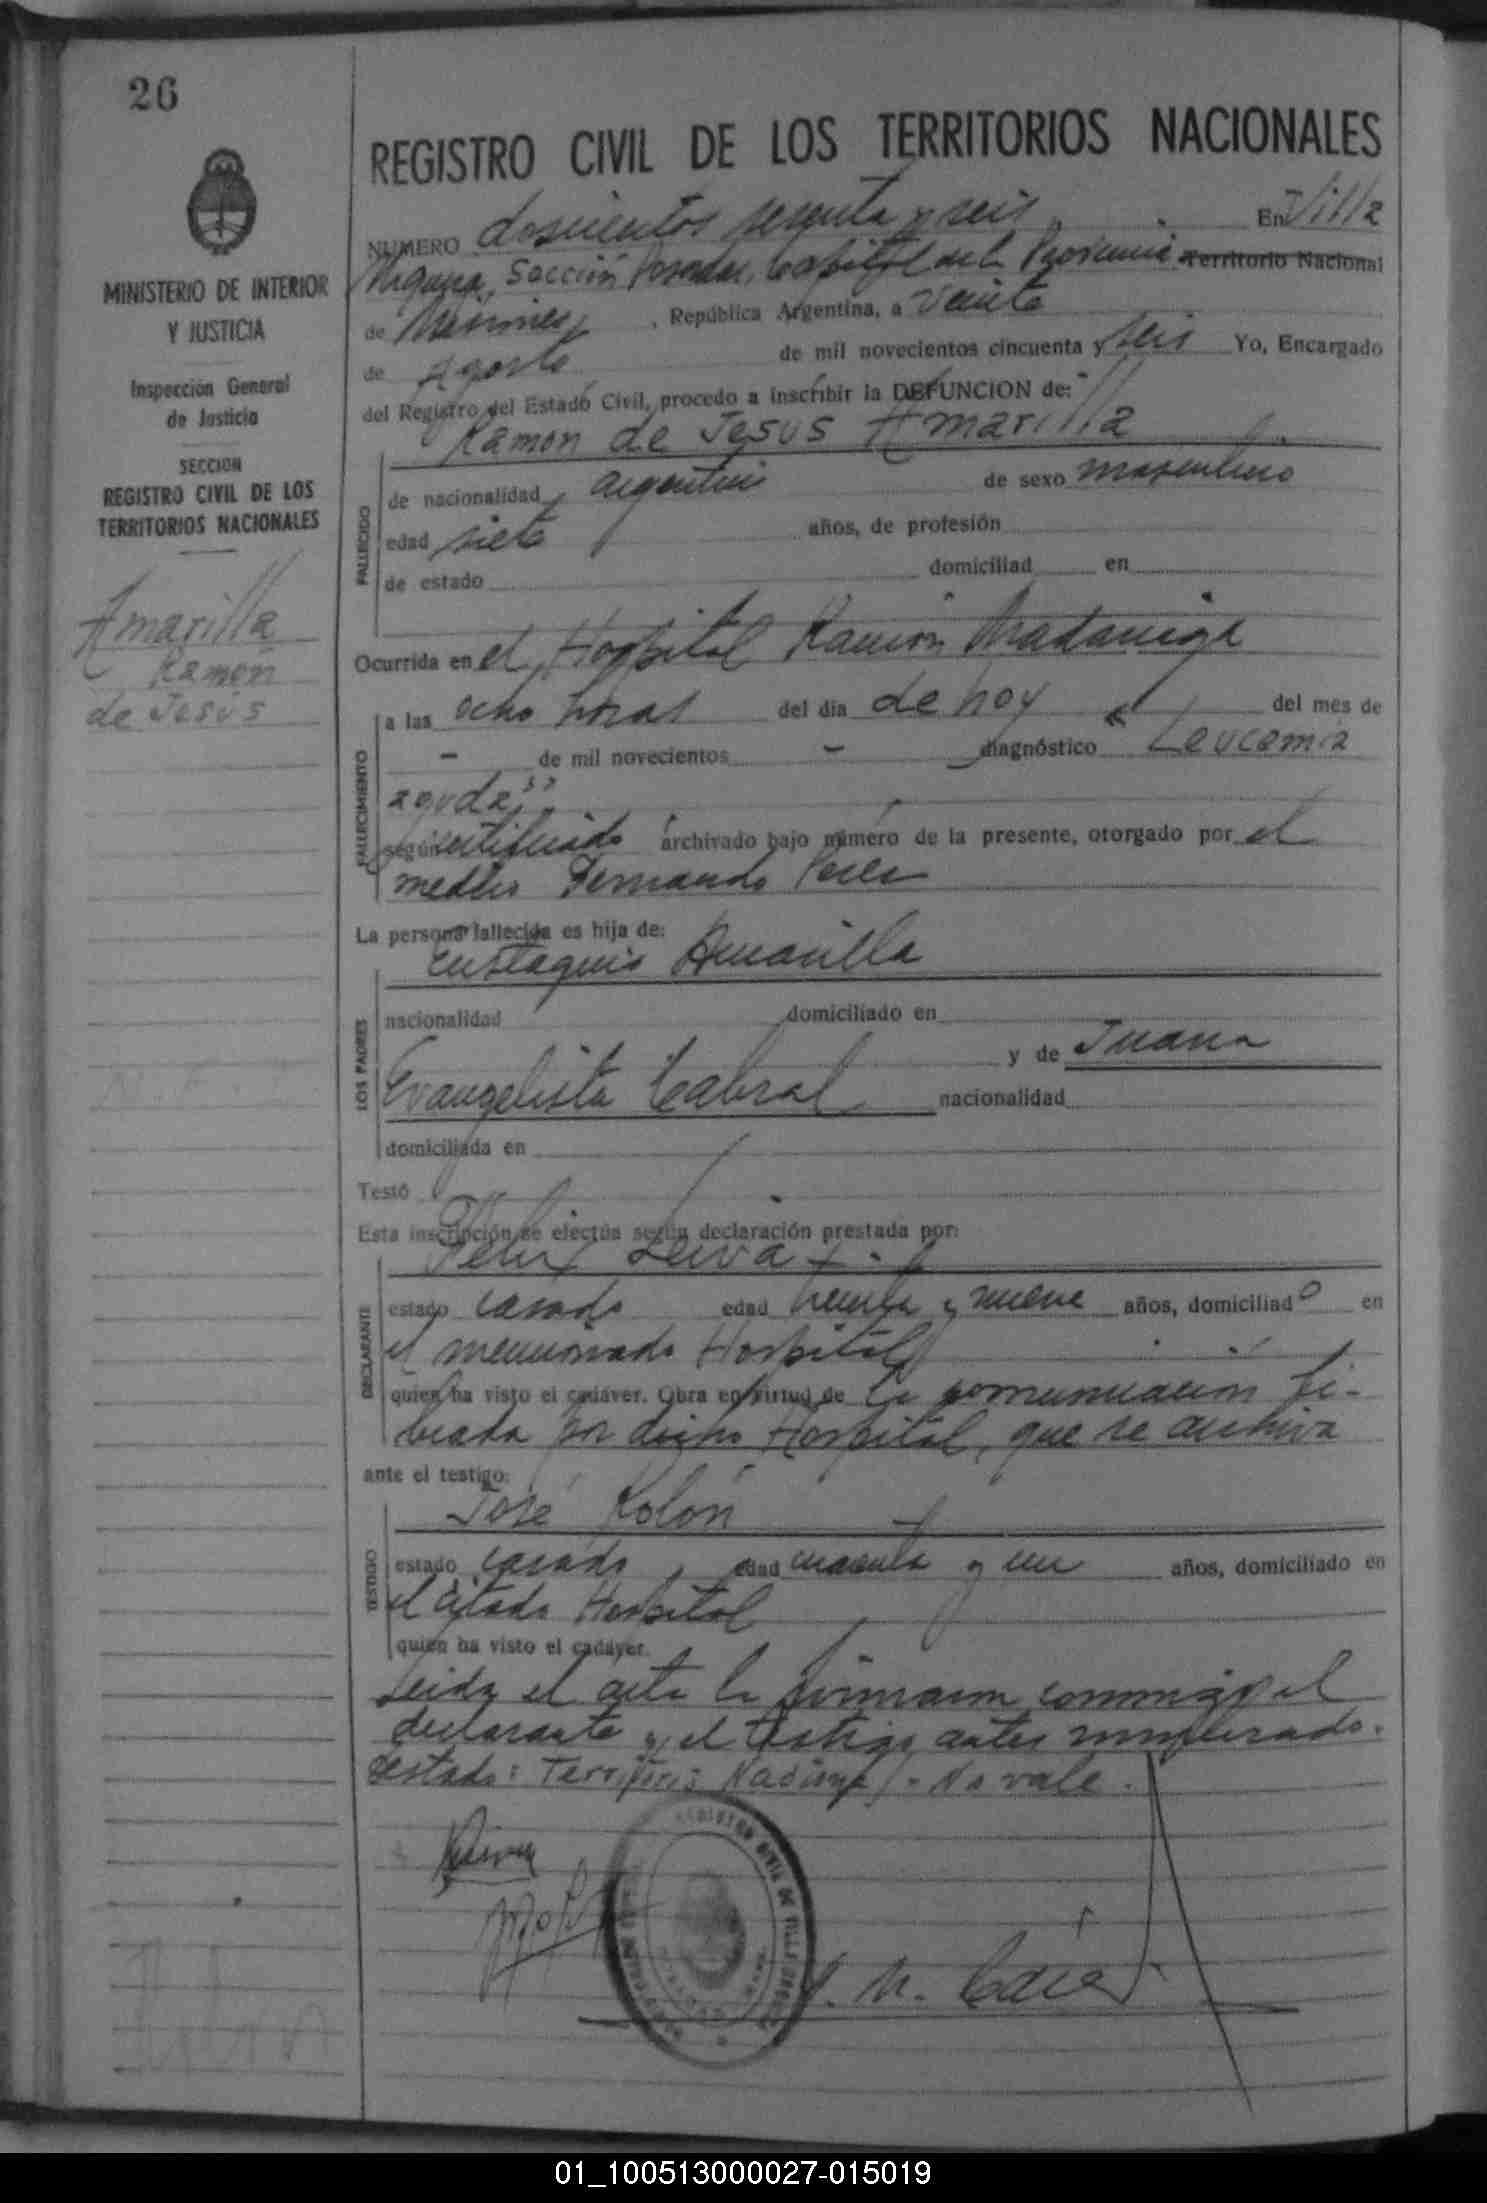 26
REGISTRO CIVIL DE LOS TERRITORIOS NACIONALES
MINISTERIO DE INTERIOR
Y JUSTICIA
Inspección General
de Justicia
SECCION
REGISTRO CIVIL DE LOS
TERRITORIOS NACIONALES
Amarilla
Ramón
de Jesús
NUMERO doscientos setenta y seis En Villa
Urquiza, Sección Posadas, Capital de la Provincia Territorio Nacional
de Misiones, República Argentina, a veinte
de Agosto de mil novecientos cincuenta y seis Yo, Encargado
del Registro del Estado Civil, procedo a inscribir la DEFUNCION de:
Ramon de Jesus Amarilla
FALLECIDO
de nacionalidad argentino de sexo masculino
edad siete años, de profesión
de estado domiciliad en
Ocurrida en el Hospital Ramón Madariaga
FALLECIMIENTO
a las ocho horas del día de hoy del mes de
- de mil novecientos - diagnóstico "Leucemia
aguda"
según certificado archivado bajo número de la presente, otorgado por el
médico Fernando
La persona fallecida es hija de:
Eustaquio Amarilla
LOS PADRES
nacionalidad domiciliado en
y de Juana
Evangelista Cabral nacionalidad
domiciliada en
Testó
Esta inscripción se efectúa según declaración prestada por:
Félix Leiva
DECLARANTE
estado casado edad treinta y nueve años, domiciliado en
el mencionado Hospital
quien ha visto el cadáver. Obra en virtud de la comunicación li-
brada por dicho Hospital, que se archiva
ante el testigo:
José Rolón
TESTIGO
estado casado, edad cuarenta y un años, domiciliado en
el citado Hospital
quien ha visto el cadáver.
Leida el acta la firmaron conmigo el
declarante y el testigo antes nombrado.
testado: Territorio Nacional. No vale.
01_100513000027-015019